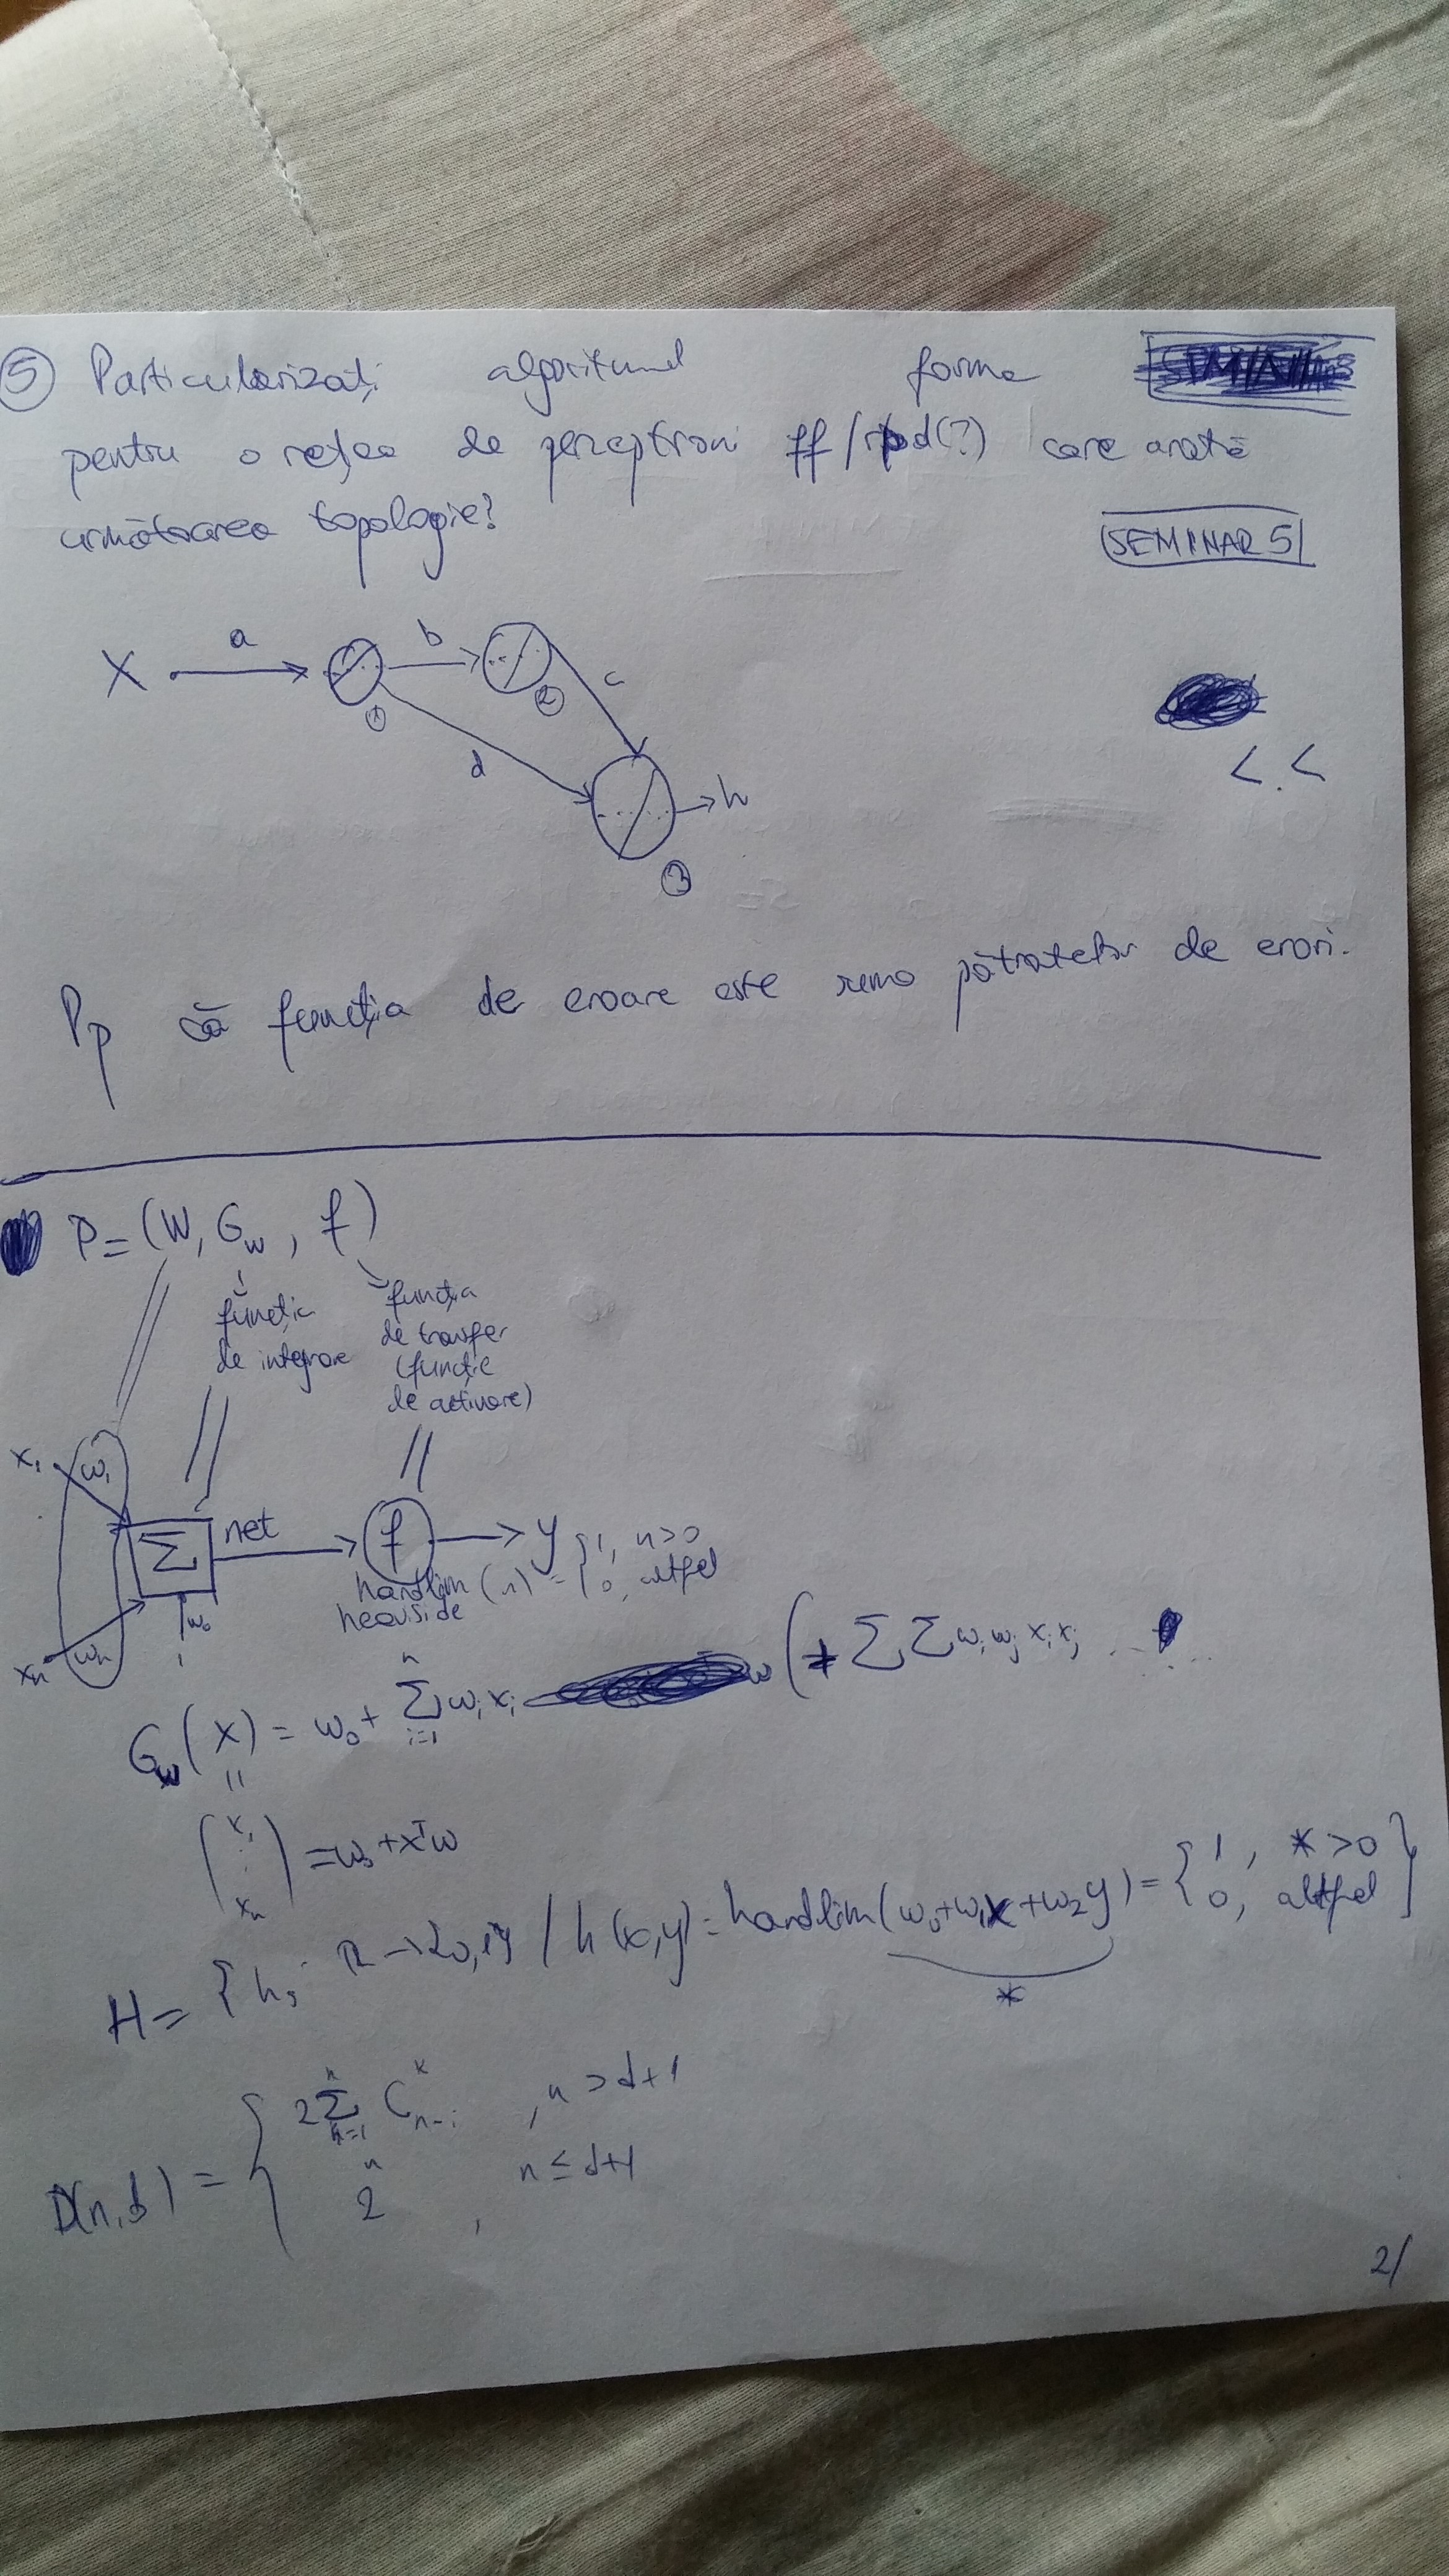 5 Particularizați algoritmul forma
pentru o rețea de perceptroni ff / care arată
următoarea topologie?
SEMINAR 5
X a b c
1 2
d
h
3
< . <
Pp că funcția de eroare este suma pătratelor de erori.
P = (W, Gw, f)
funcția de integrare
funcția de transfer (funcție de activare)
x1 w1
Σ net f y
hardlim (n) = { 1, n>0
0, altfel
heaviside
w0
xn wn
1
Gw(x) = w0 + Σ i=1 n wi xi (+ ΣΣ wi wj xi xj ...
(x1 ⋮ xn) = w0 + xᵀw
H = { h: R → {0,1} / h(x,y) = hardlim(w0+w1x+w2y) = { 1, * >0
0, altfel }
*
D(n,d) = { 2 Σ k=1 n C n-1 k , n > d+1
2ⁿ , n ≤ d+1
2/